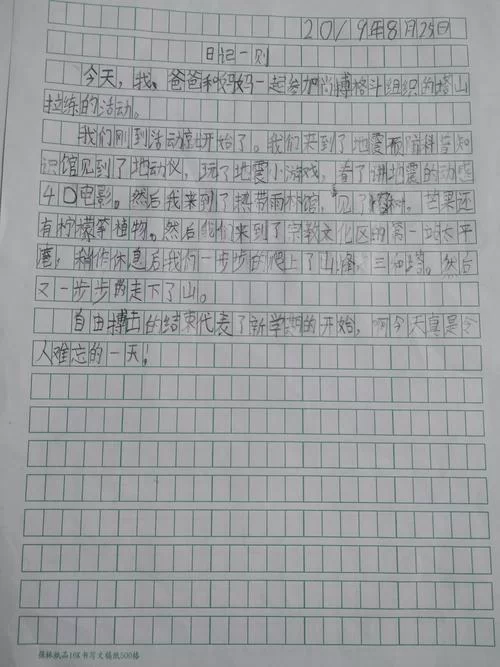 2019年8月25日
日记一则
今天，我、爸爸和妈妈一起参加尚搏格斗组织的塔山
拉练的活动。
我们刚到活动就开始了。我们来到了地震预防科普知
识馆见到了地动仪，玩了地震小游戏，看了讲地震的动感
4D电影。然后我来到了热带雨林馆，见了树，芒果还
有柠檬等植物。然后我们来到了宗教文化区的第一站太平
庵，稍作休息后我们一步步的爬上了山峰，三和塔。然后
又一步步的走下了山。
自由搏击的结束代表了新学期的开始，啊今天真是令
人难忘的一天！
猿林纸品16K书写文稿纸500格